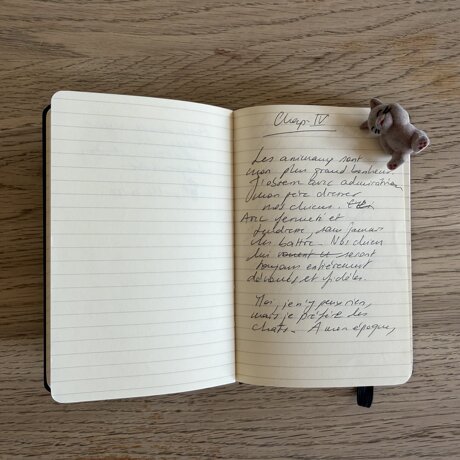 Chap IV
Les animaux sont
mon plus grand bonheur.
J'observe avec admiration
mon père dresser
nos chiens.
Avec fermeté et
tendresse, sans jamais
les battre. Nos chiens
lui seront
toujours entièrement
dévoués et fidèles.
Moi, je n'y peux rien,
mais je préfère les
chats. A mon époque,